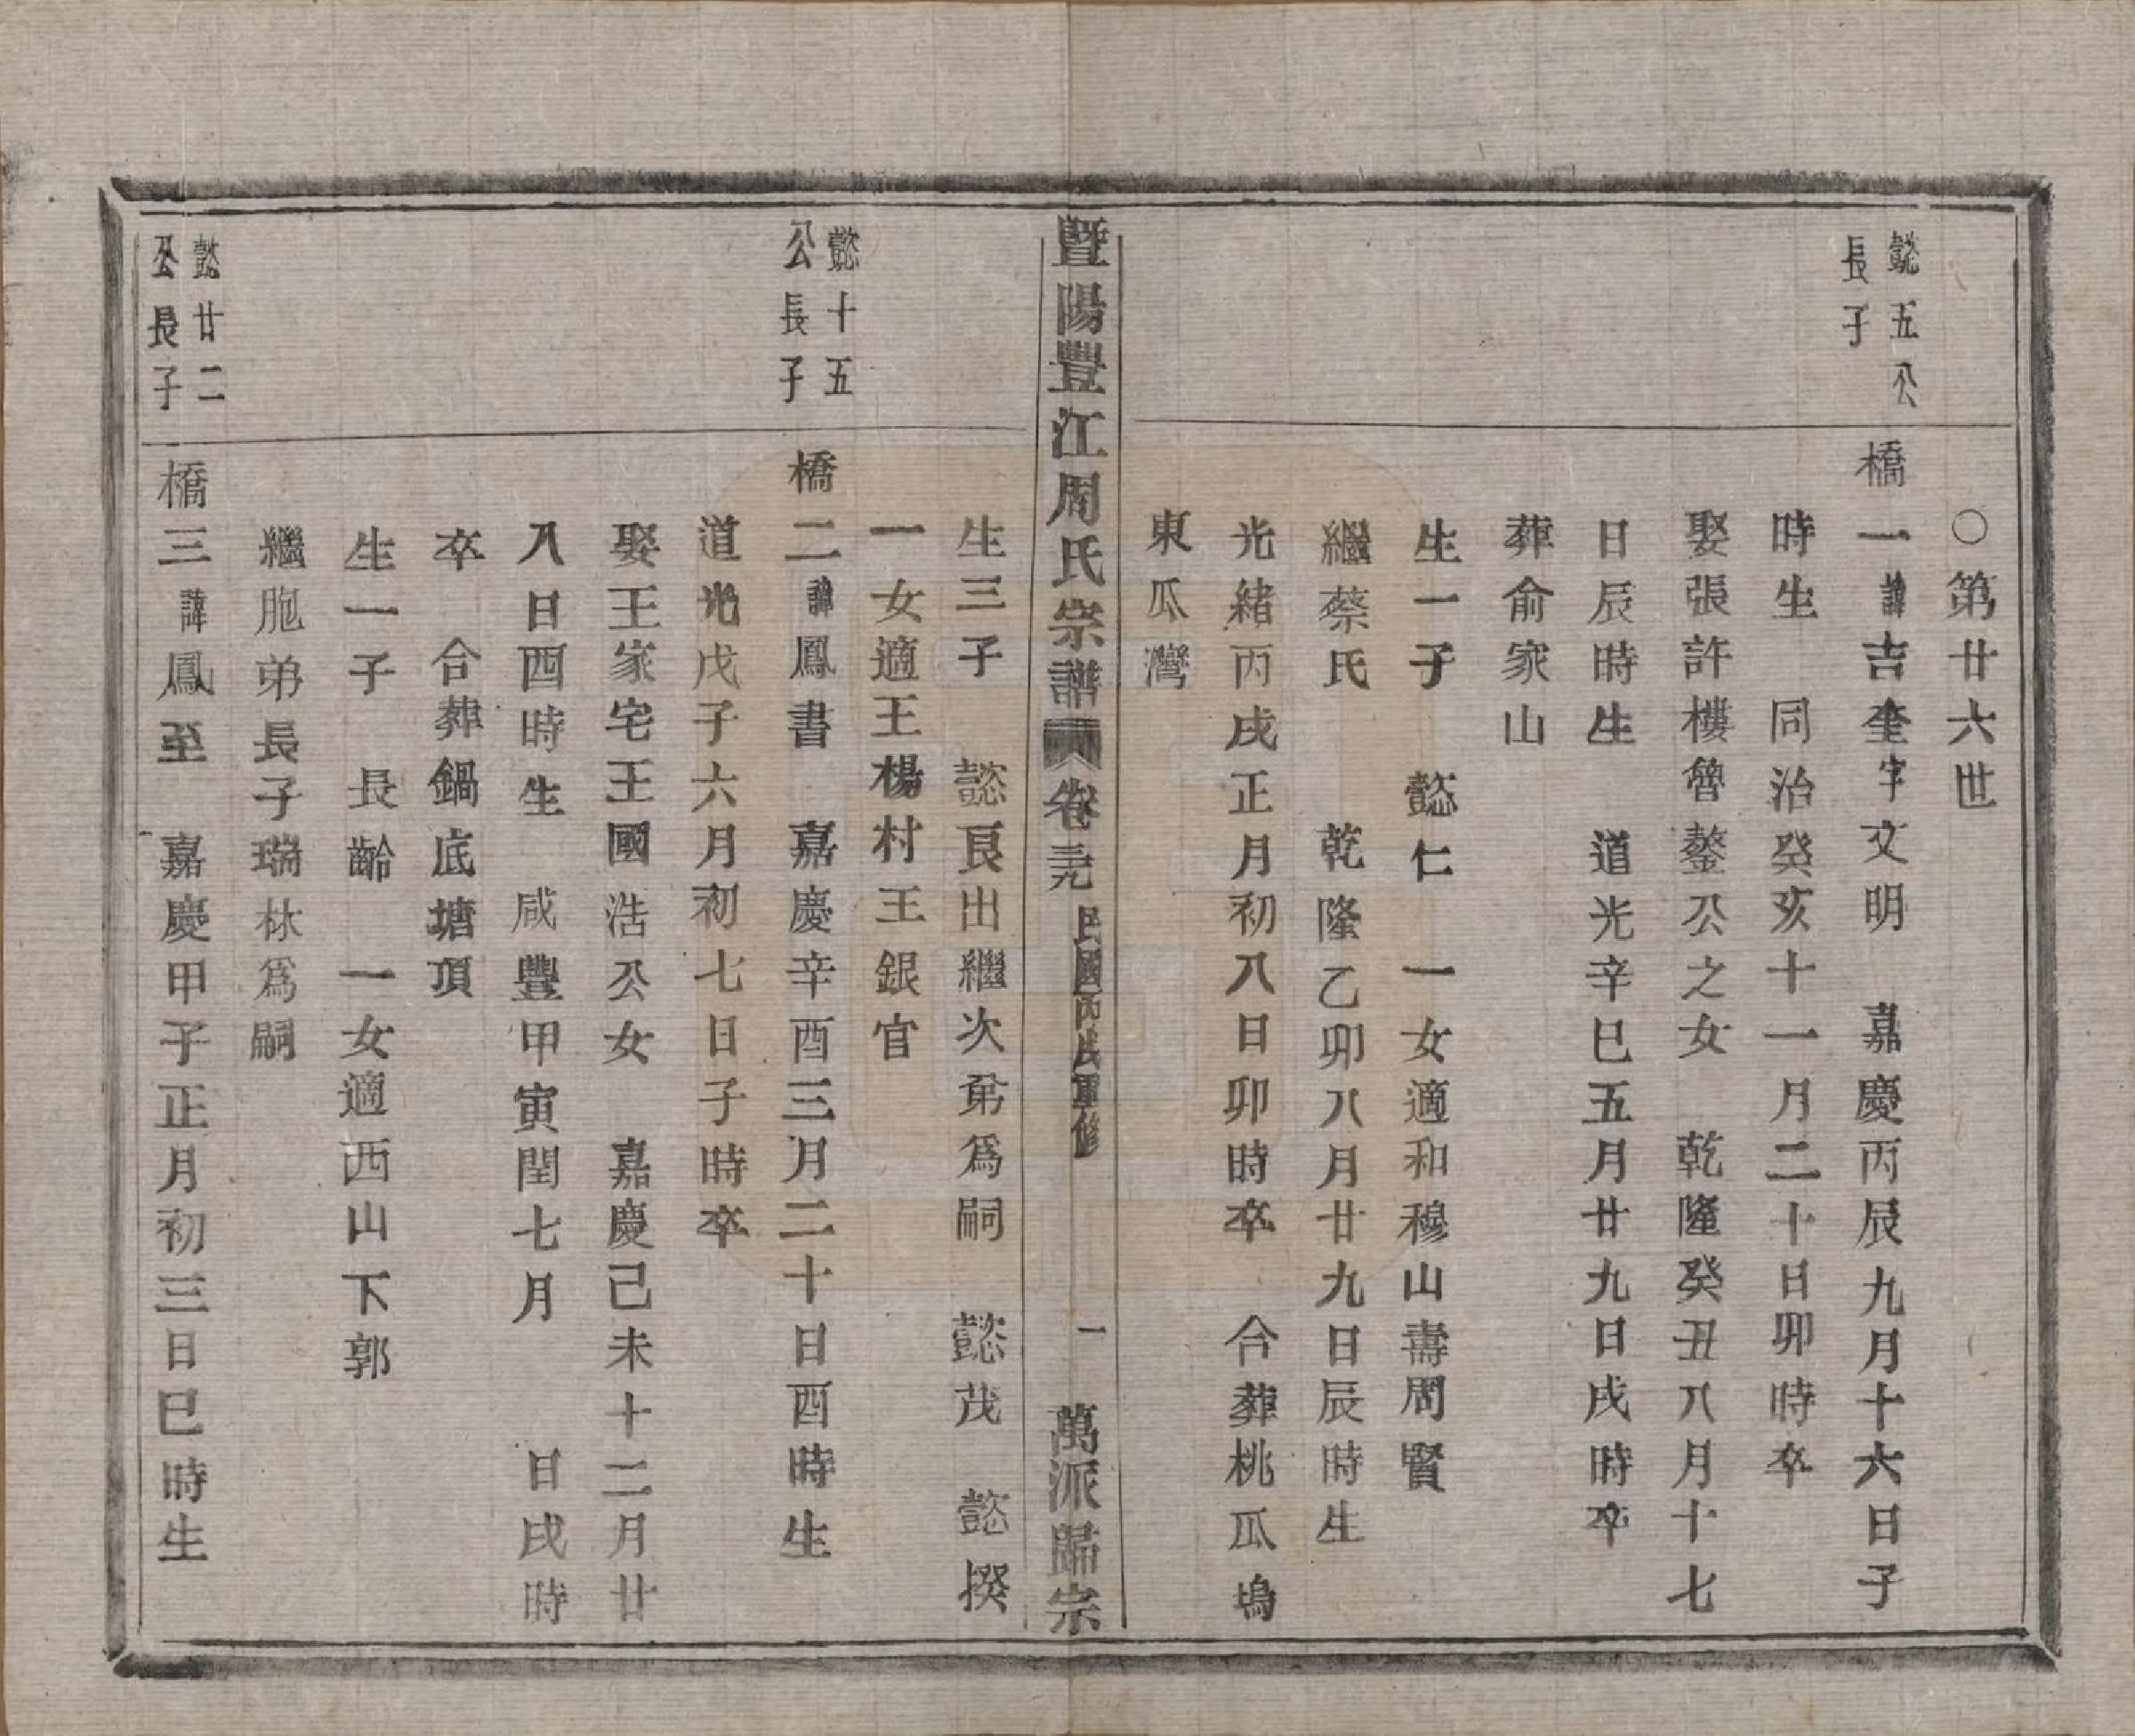 ○第廿六世
懿五公
長子
橋一諱吉奎字文明　嘉慶丙辰九月十六日子
時生　同治癸亥十一月二十日卯時卒
娶張許樓魯鏊公之女　乾隆癸丑八月十七
日辰時生　道光辛巳五月廿九日戌時卒
葬俞家山
生一子　懿仁　一女適和穆山壽周賢
繼蔡氏　乾隆乙卯八月廿九日辰時生
光緒丙戌正月初八日卯時卒　合葬桃瓜塢
東瓜灣
暨陽豐江周氏宗譜　卷　民國丙戌重修　一　萬派歸宗
生三子　懿良出繼次弟爲嗣　懿茂　懿揆
一女適王楊村王銀官
懿十五
公長子
橋二諱鳳書　嘉慶辛酉三月二十日酉時生
道光戊子六月初七日子時卒
娶王家宅王國浩公女　嘉慶己未十二月廿
八日酉時生　咸豐甲寅閏七月　日戌時
卒　合葬鍋底塘頂
生一子　長齡　一女適西山下郭
繼胞弟長子瑞林爲嗣
懿廿二
公長子
橋三諱鳳至　嘉慶甲子正月初三日巳時生